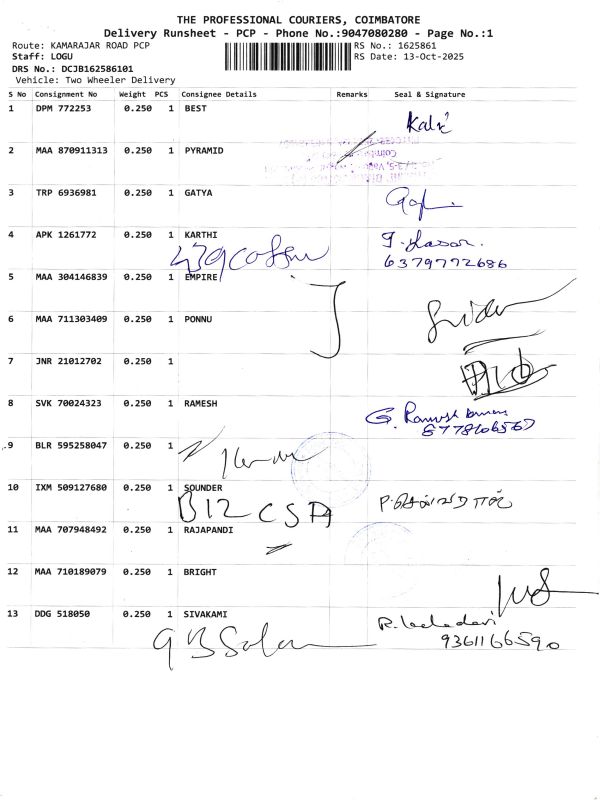 THE PROFESSIONAL COURIERS, COIMBATORE
Delivery Runsheet - PCP - Phone No.:9047080280 - Page No.:1
Route: KAMARAJAR ROAD PCP RS No.: 1625861
Staff: LOGU RS Date: 13-Oct-2025
DRS No.: DCJB162586101
Vehicle: Two Wheeler Delivery
S No Consignment No Weight PCS Consignee Details Remarks Seal & Signature
1 DPM 772253 0.250 1 BEST
2 MAA 870911313 0.250 1 PYRAMID
3 TRP 6936981 0.250 1 GATYA
4 APK 1261772 0.250 1 KARTHI
6379772686
5 MAA 304146839 0.250 1 EMPIRE
6 MAA 711303409 0.250 1 PONNU
7 JNR 21012702 0.250 1
8 SVK 70024323 0.250 1 RAMESH
9 BLR 595258047 0.250 1
10 IXM 509127680 0.250 1 SOUNDER
11 MAA 707948492 0.250 1 RAJAPANDI
12 MAA 710189079 0.250 1 BRIGHT
13 DDG 518050 0.250 1 SIVAKAMI
9361166590